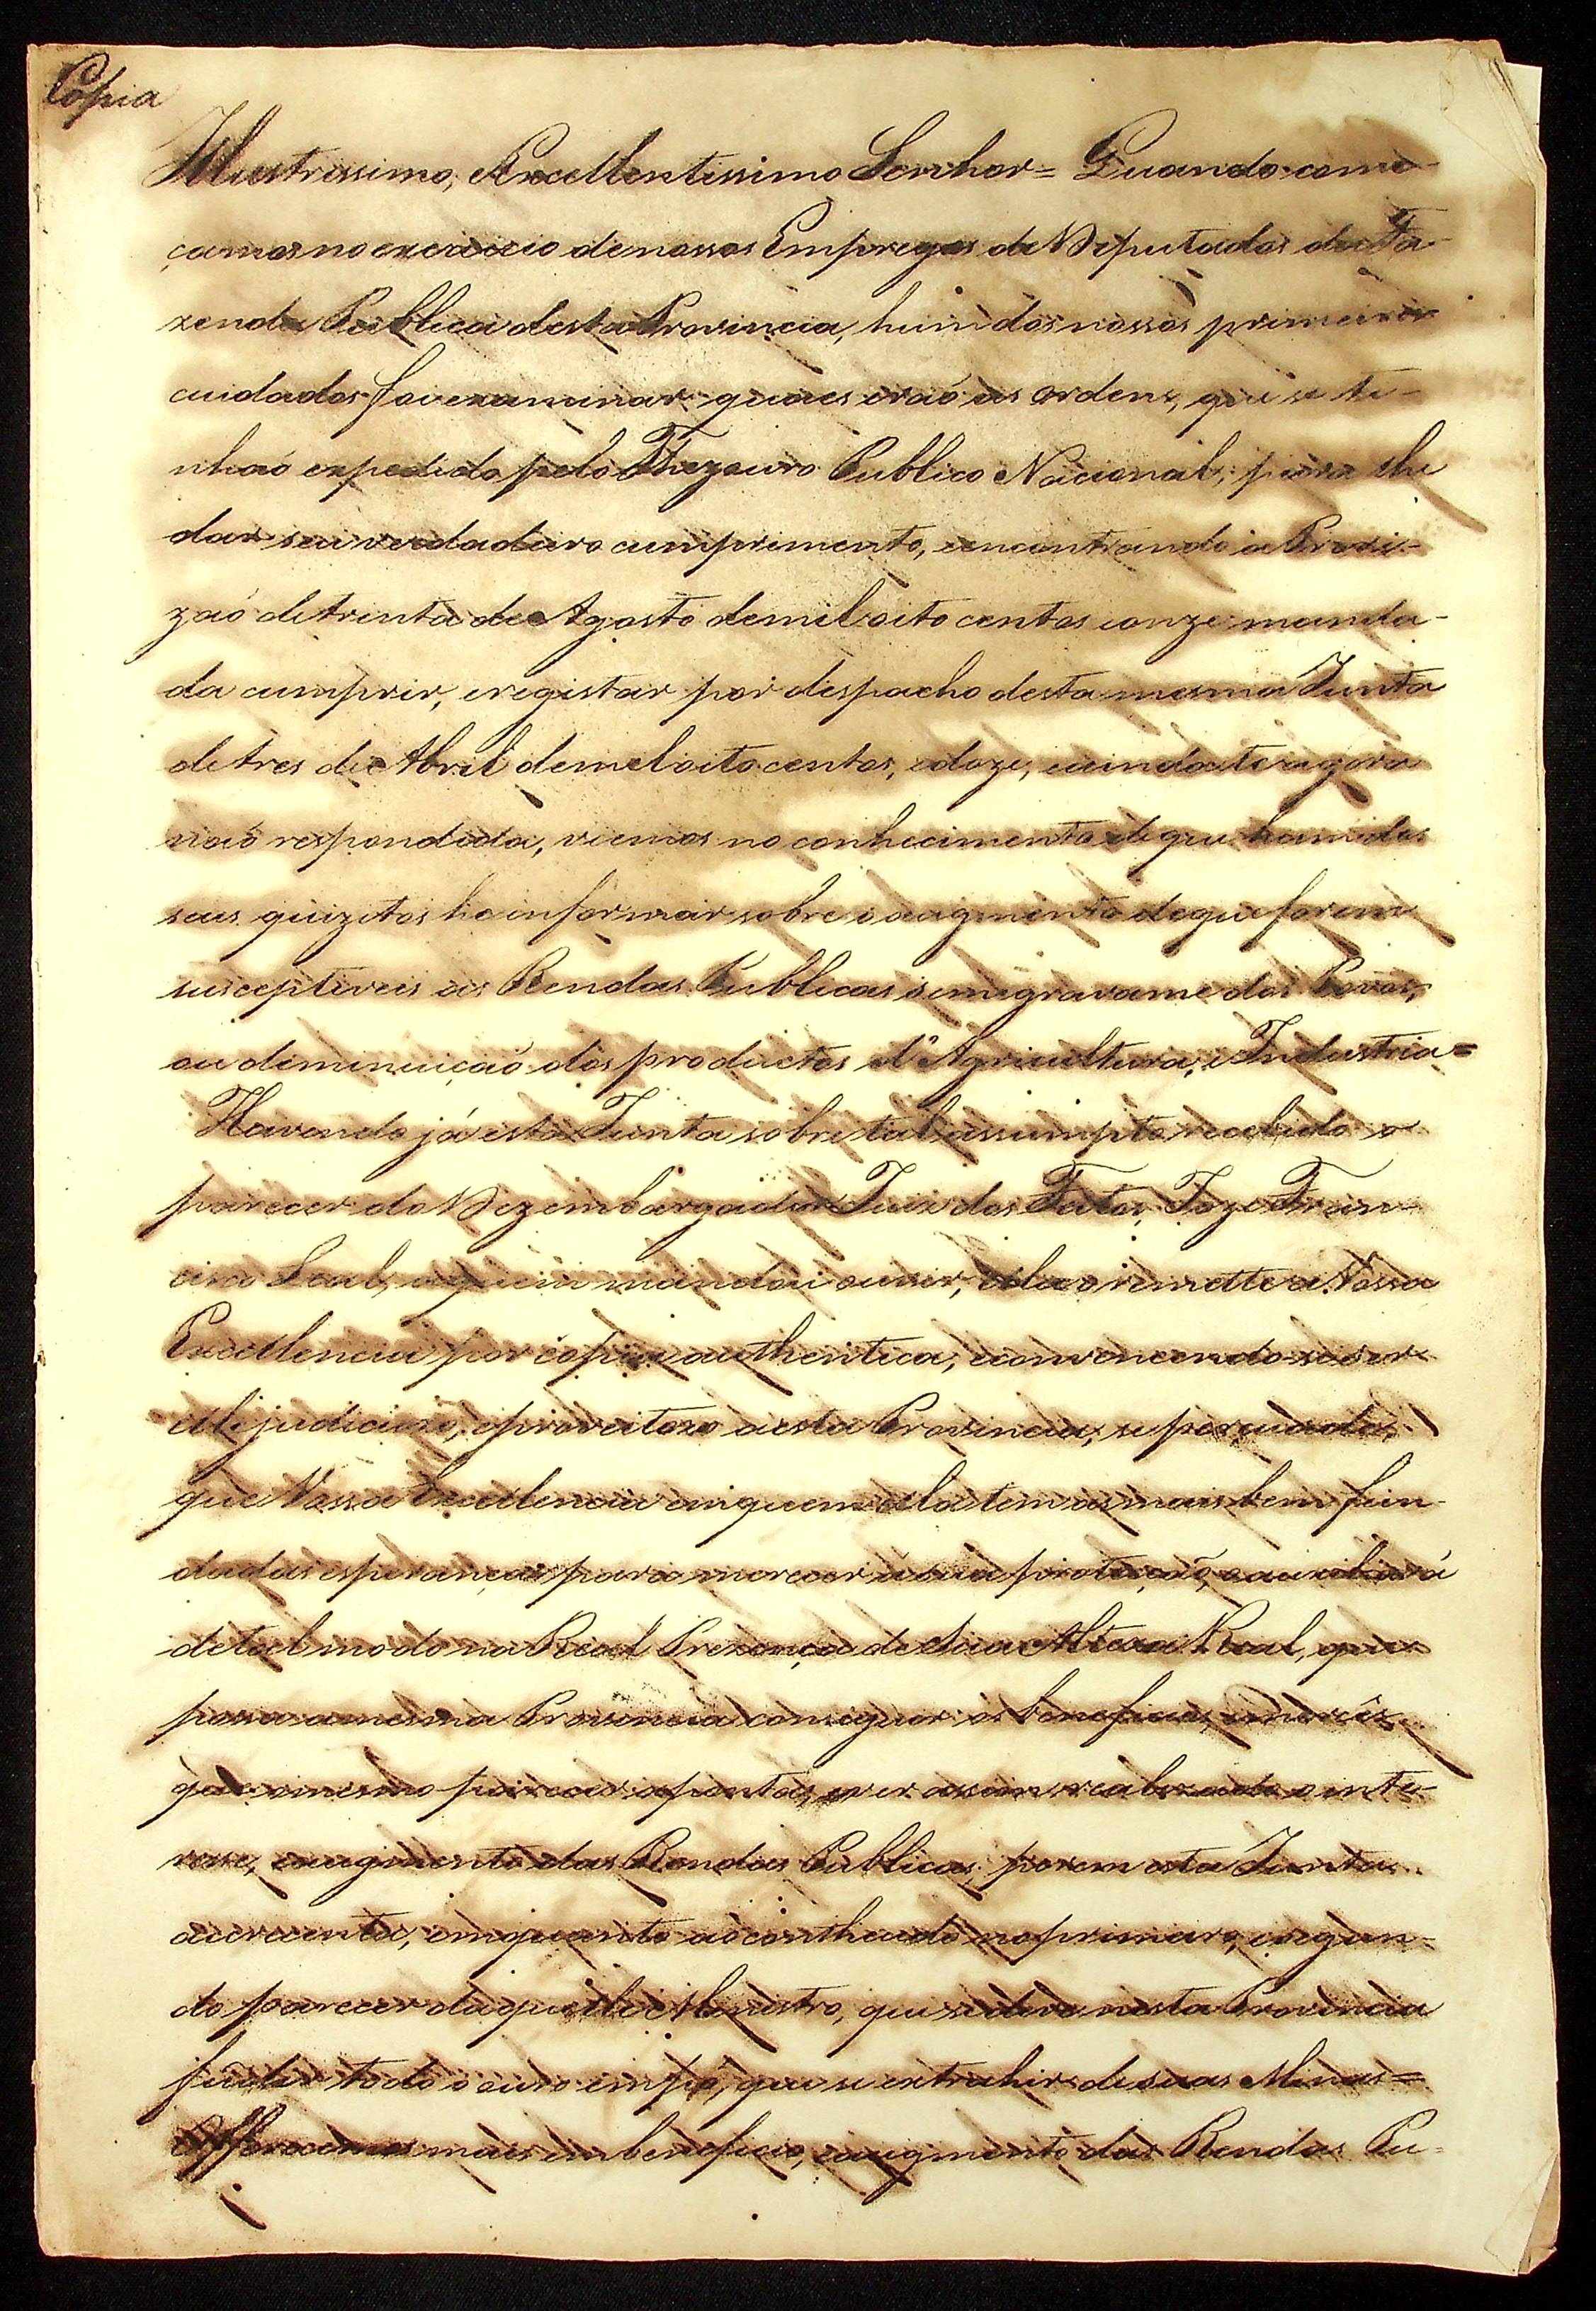 Copia
Illustrissimo, Excellentissimo Senhor = Quando come-
çamos no exercicio de nossos Empregos de Deputados da Fa-
zenda Publica desta Provincia, hum dos nossos primeiros
cuidados foi examinar quaes eraó as ordens, que se ti-
nhaó expedido pelo Thezouro Publico Nacional, para lhe
dar seu verdadeiro cumprimento, e encontrando a Provi-
zaó de trinta de Agosto de mil oito centos e onze manda-
da cumprir, e registar por despacho desta mesma Junta
de tres de Abril de mil oito centos, e doze, e ainda te agora
naó respondida, viemos no conhecimento de que hum dos
seus quizitos he informar sobre o augmento de que forem
susceptiveis as Rendas Publicas sem gravame dos Povos,
ou deminuiçaó dos productos d'Agricultura, e Industria =
Havendo já esta Junta sobre tal assumpto recebido o
parecer do Dezembargador Juiz dos Feitos, Joze Fran-
cisco Leal, a quem mandou ouvir, ella o remette a Vossa
Excellencia por copia authentica, e convencendo-se ser
elle judiciozo, e proveitozo a esta Provincia, se persuade,
que Vossa Excellencia em quem ella tem as mais bem fun-
dadas esperanças para merecer a sua protecçaõ, o auxiliará
de tal modo na Real Prezença de Sua Alteza Real, que
possa a mesma Provincia conseguir os beneficios, e mercês
que o mesmo parecer aponta, e ver assim realizado o inte-
resse, e augmento das Rendas Publicas, porem esta Junta
accrescenta, em quanto ao contheudo no primeiro, e segun-
do parecer daquelle Ministro, que se deve nesta Provincia
fundir todo o ouro em pó, que se extrahir de suas Minas =
Offerecemos mais em beneficio, e augmento das Rendas Pu-